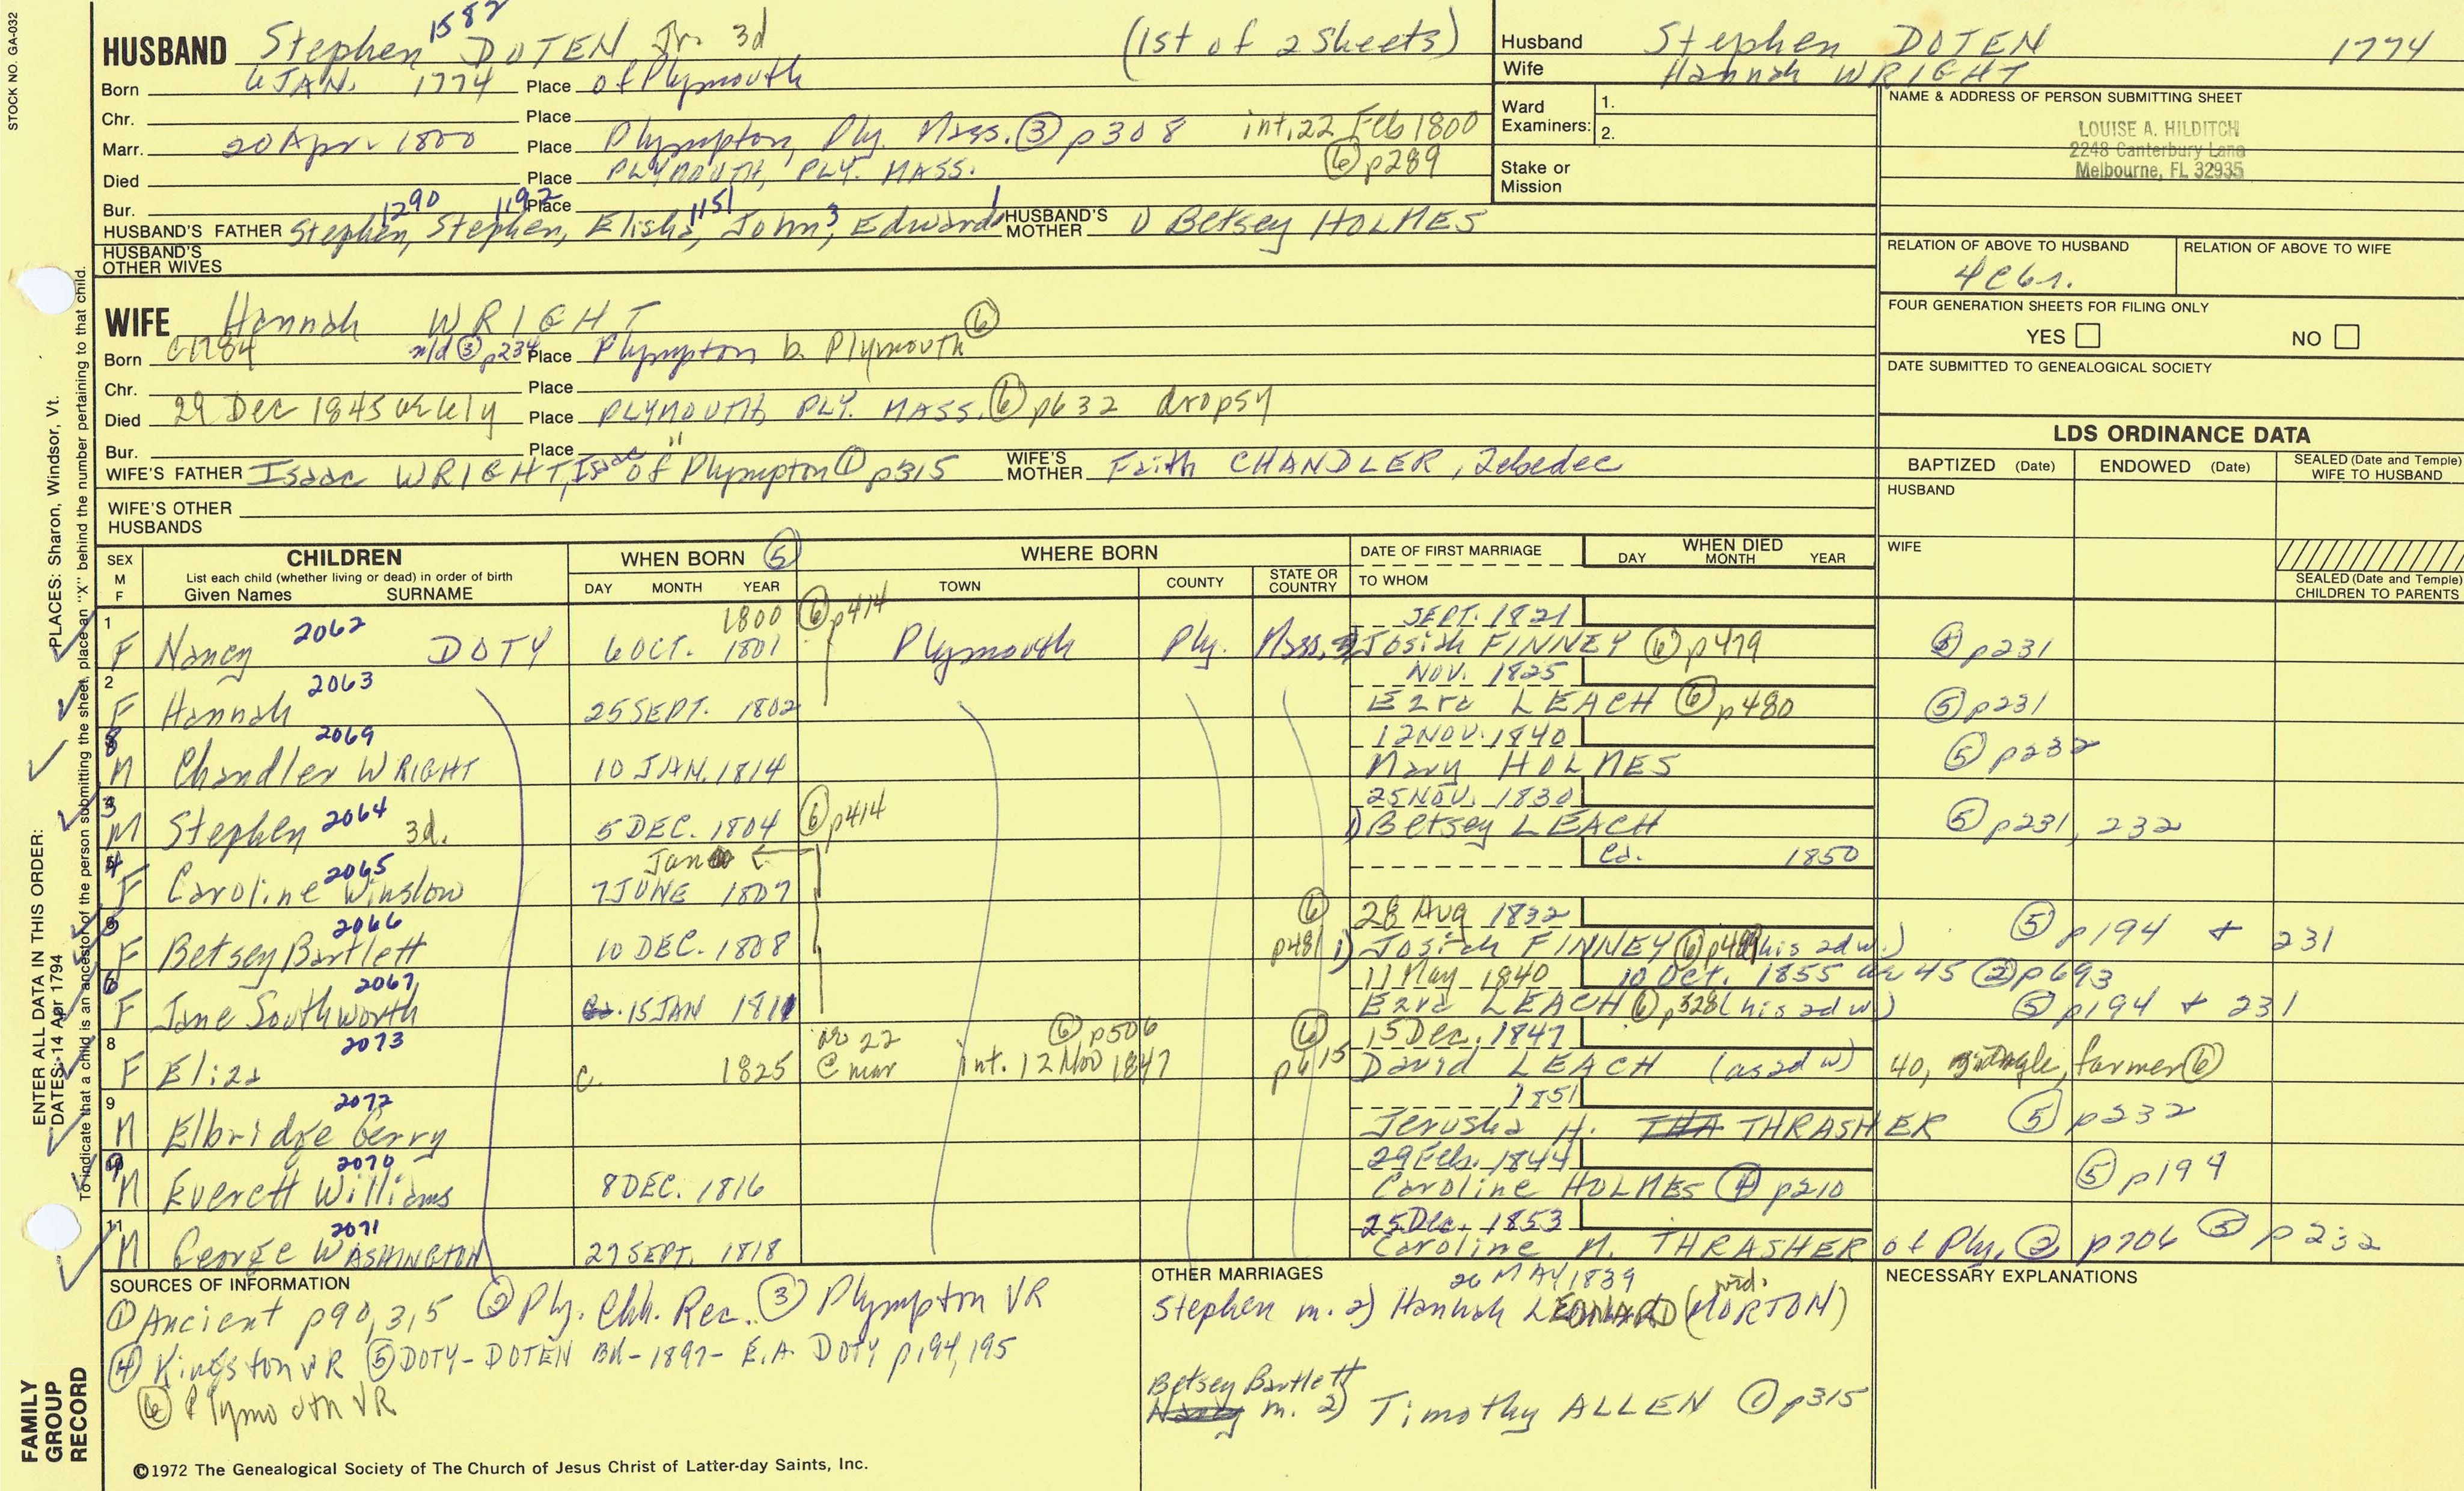 STOCK NO. GA-032
1582
HUSBAND Stephen DOTEN Jr. 3d (1st of 2 Sheets)
Born 6 JAN. 1774 Place of Plymouth
Chr. Place
Marr. 20 Apr. 1800 Place Plympton, Ply. Mass. ③ p308 int. 22 Feb 1800
Died Place PLYMOUTH, PLY. MASS. ⑥ p289
Bur. Place
1290 1192 1151 3 1
HUSBAND'S FATHER Stephen, Stephen, Elisha, John, Edward HUSBAND'S MOTHER 1) Betsey HOLMES
HUSBAND'S OTHER WIVES
WIFE Hannah WRIGHT ⑥
Born C1784 n/d ③ p234 Place Plympton b. Plymouth
Chr. Place
Died 29 Dec 1845 Place PLYMOUTH, PLY. MASS. ⑥ p632 dropsy
Bur. Place "
WIFE'S FATHER Isaac WRIGHT, Isaac of Plympton ① p315 WIFE'S MOTHER Faith CHANDLER, Zebedee
WIFE'S OTHER HUSBANDS
Husband Stephen DOTEN 1774
Wife Hannah WRIGHT
Ward Examiners: 1.
2.
Stake or Mission
NAME & ADDRESS OF PERSON SUBMITTING SHEET
LOUISE A. HILDITCH
2248 Canterbury Lane
Melbourne, FL 32935
RELATION OF ABOVE TO HUSBAND RELATION OF ABOVE TO WIFE
4C6r.
FOUR GENERATION SHEETS FOR FILING ONLY
YES NO
DATE SUBMITTED TO GENEALOGICAL SOCIETY
LDS ORDINANCE DATA
BAPTIZED (Date) ENDOWED (Date) SEALED (Date and Temple) WIFE TO HUSBAND
HUSBAND
WIFE
SEALED (Date and Temple) CHILDREN TO PARENTS
SEX M F CHILDREN WHEN BORN ⑤ WHERE BORN DATE OF FIRST MARRIAGE WHEN DIED
List each child (whether living or dead) in order of birth
Given Names SURNAME DAY MONTH YEAR TOWN COUNTY STATE OR COUNTRY TO WHOM DAY MONTH YEAR
1 2062 1800 ⑥ p414 SEPT. 1821
F Nancy DOTY 6 OCT. 1801 Plymouth Ply. Mass. Josiah FINNEY ⑥ p479 p231
2 2063 NOV. 1825
F Hannah 25 SEPT. 1802 Ezra LEACH ⑥ p480 ⑤ p231
2069 12 NOV. 1840
M Chandler WRIGHT 10 JAN. 1814 Mary HOLMES ⑤ p232
3 2064 ⑥ p414 25 NOV. 1830
M Stephen 3d. 5 DEC. 1804 1) Betsey LEACH ⑤ p231, 232
4 2065 Jan 1850
F Caroline Winslow 7 JUNE 1807
2066 ⑥ 28 Aug 1832
F Betsey Bartlett 10 DEC. 1808 p481 1) Josiah FINNEY ⑥ (his 2d w.) ⑤ p194 + 231
6 2067 11 May 1840 10 Oct. 1855 ae 45 ② p693
F Jane Southworth 15 JAN 1811 Ezra LEACH ⑥ p328 (his 2d w) ⑤ p194 + 231
8 2073 ae 22 ⑥ p506 ⑥ 15 Dec. 1847
F Eliza c. 1825 @ mar int. 12 Nov 1847 p615 David LEACH (as 2d w) 40, farmer ⑥
9 2072 1851
M Elbridge Gerry Jerusha H. THRASHER ⑤ p232
2070 29 Feb. 1844
M Everett Williams 8 DEC. 1816 Caroline HOLMES ④ p210 ⑤ p194
11 2071 25 Dec. 1853
M George WASHINGTON 27 SEPT. 1818 Caroline M. THRASHER of Ply. ② p706 ⑤ p232
SOURCES OF INFORMATION
① Ancient p90, 3, 5 ② Ply. Chh. Rec. ③ Plympton VR
④ Kingston VR ⑤ DOTY-DOTEN BK-1897- E.A. DOTY p194, 195
⑥ Plymouth VR
OTHER MARRIAGES
26 MAY 1839 wid.
Stephen m. 2) Hannah LEONARD (MORTON)
Betsey Bartlett
m. 2) Timothy ALLEN ① p315
NECESSARY EXPLANATIONS
©1972 The Genealogical Society of The Church of Jesus Christ of Latter-day Saints, Inc.
FAMILY GROUP RECORD
ENTER ALL DATA IN THIS ORDER:
DATES: 14 Apr 1794
PLACES: Sharon, Windsor, Vt.
To indicate that a child is an ancestor of the person submitting the sheet, place an "X" behind the number pertaining to that child.